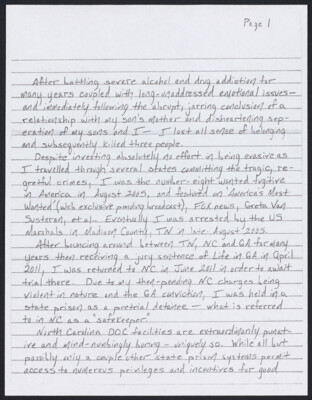 Page 1
After battling severe alcohol and drug addiction for
many years coupled with long-unaddressed emotional issues—
and immediately following the abrupt, jarring conclusion of a
relationship with my son's mother and disheartening sep-
eration of my sons and I— I lost all sense of belonging
and subsequently killed three people.
Despite investing absolutely no effort in being evasive as
I travelled through several states committing the tragic, re-
gretful crimes, I was the number-eight wanted fugitive
in America in August 2005, and featured on America's Most
Wanted (web exclusive pending broadcast), FOX news, Greta Van
Susteran, et al. Eventually I was arrested by the US
Marshals in Madison County, TN in late August 2005.
After bouncing around between TN, NC and GA for many
years then receiving a jury sentence of Life in GA in April
2011, I was returned to NC in June 2011 in order to await
trial there. Due to my then-pending NC charges being
violent in nature and the GA conviction, I was held in a
state prison as a pretrial detainee — what is referred
to in NC as a "safekeeper."
North Carolina DOC facilities are extraordinarily punit-
ive and mind-numbingly boring — uniquely so. While all but
possibly only a couple other state prison systems permit
access to numerous privileges and incentives for good